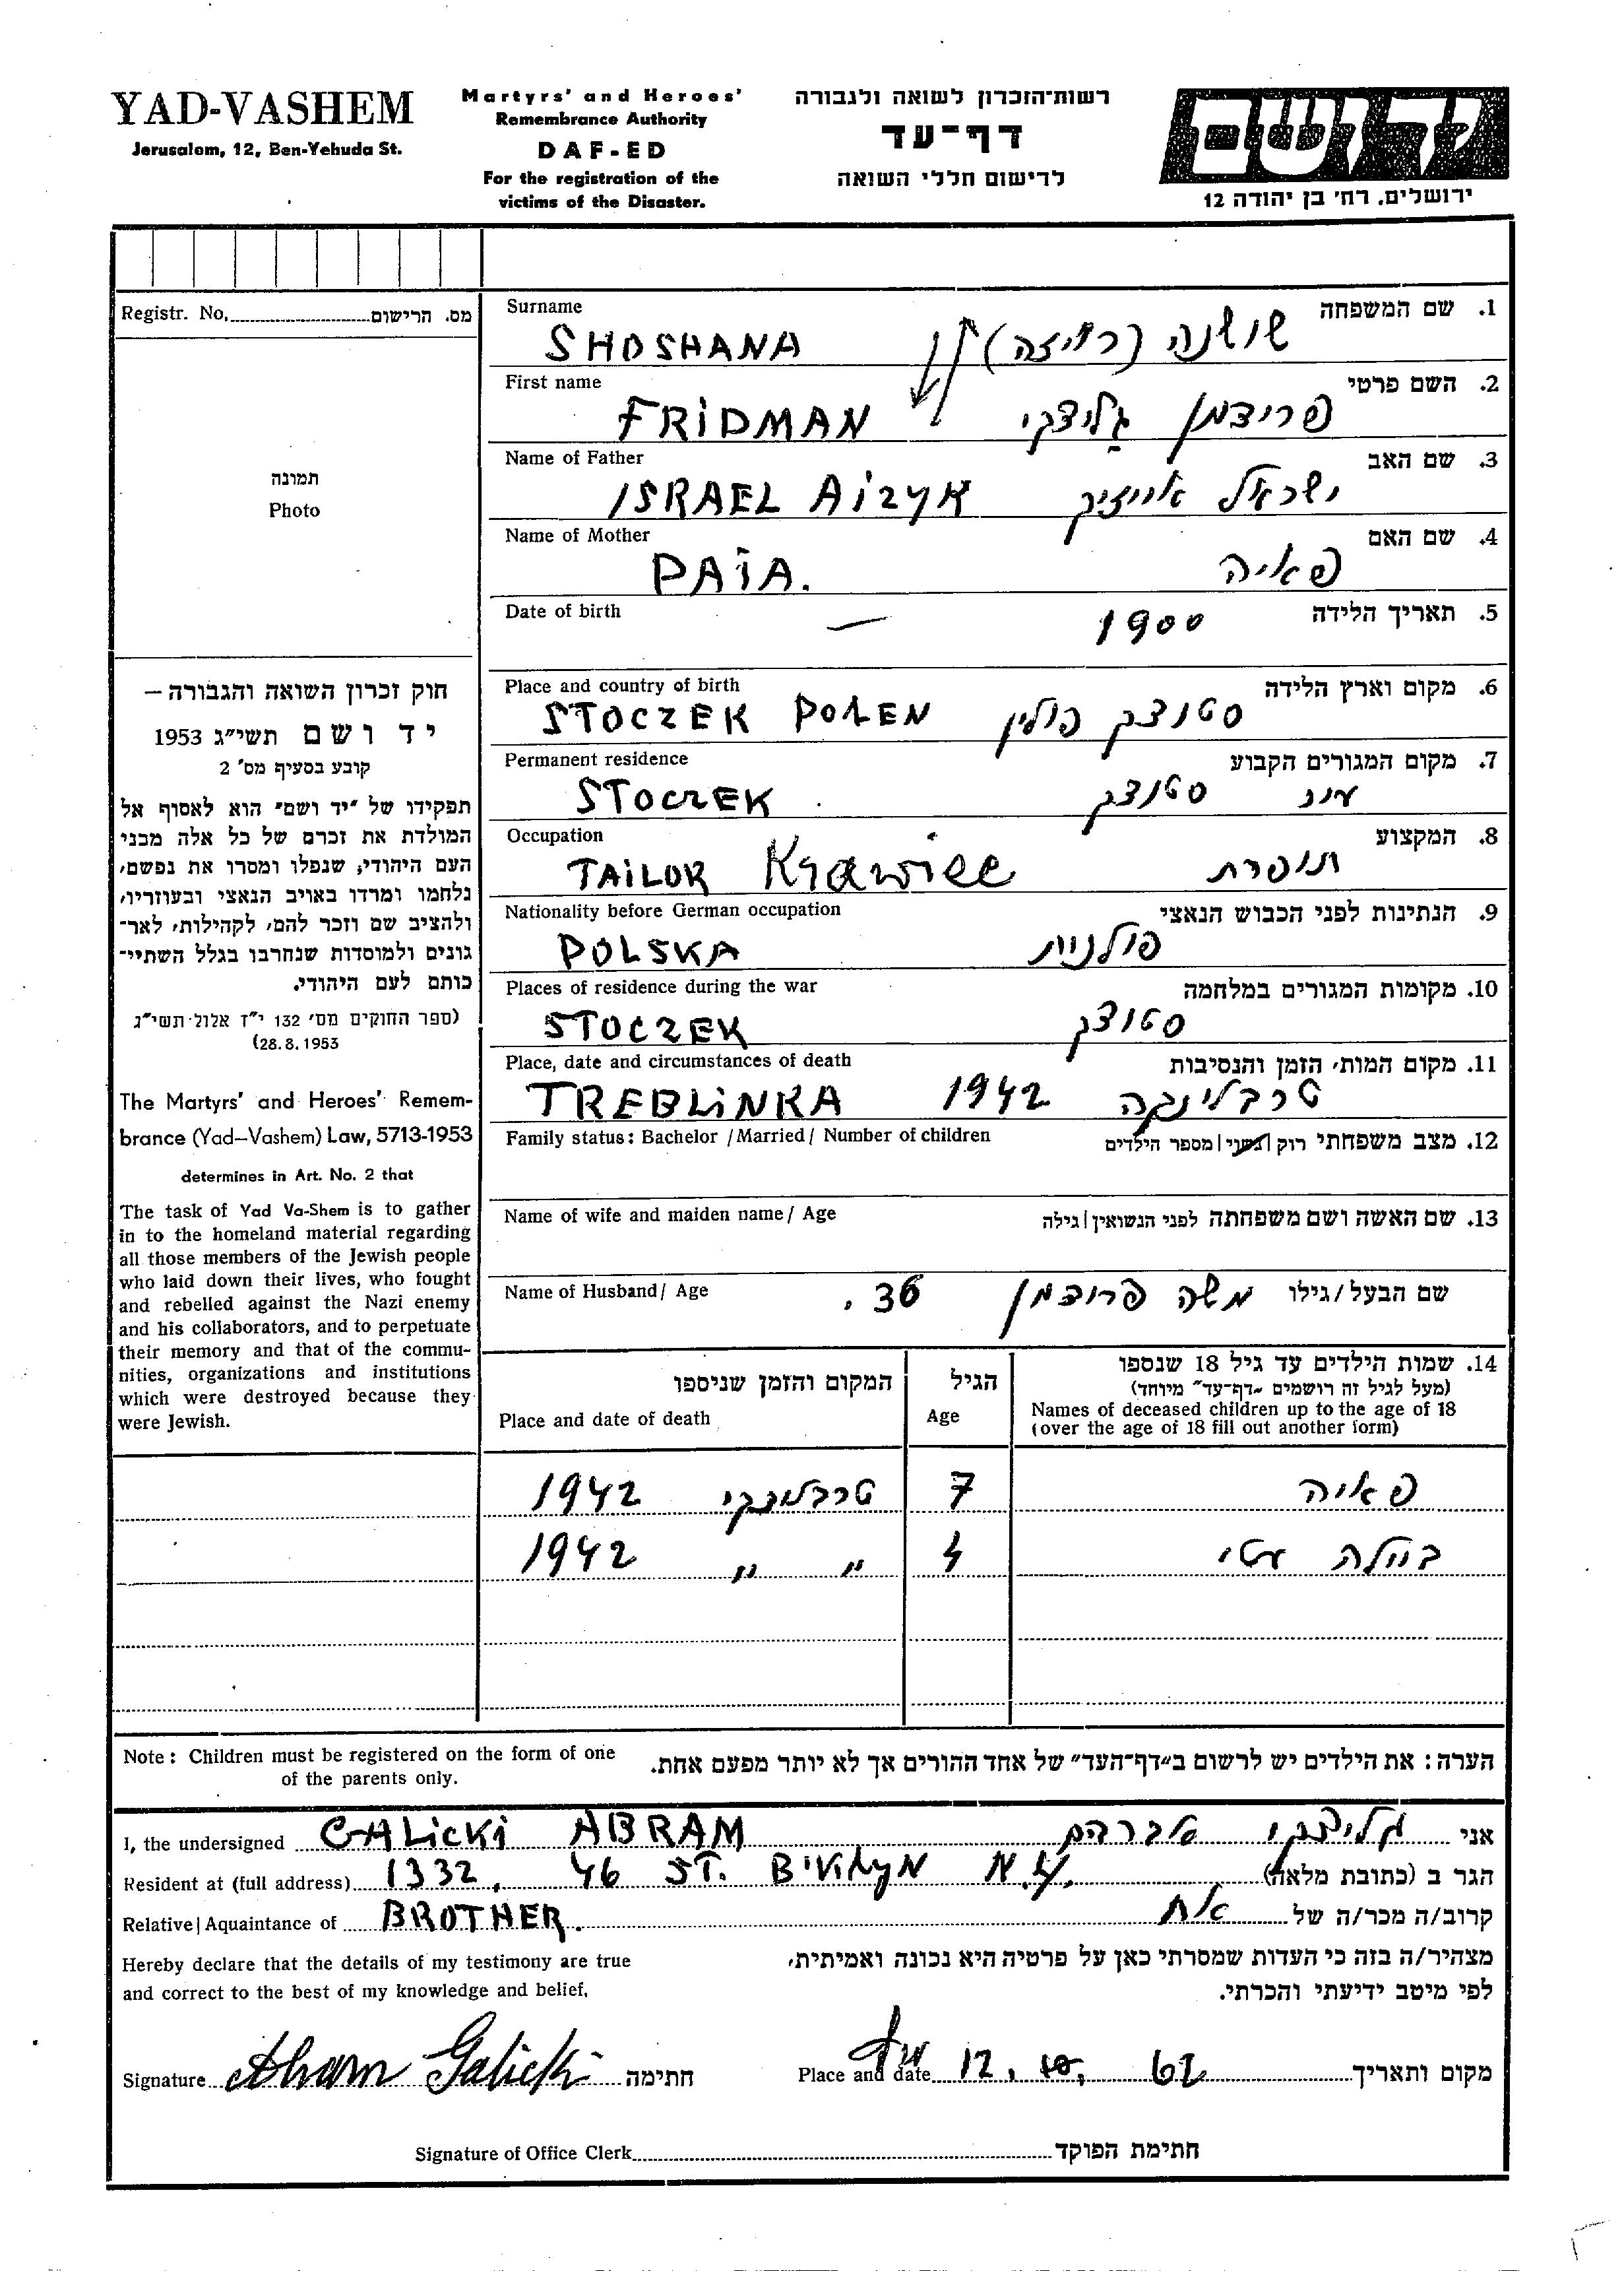 YAD-VASHEM
Jerusalem, 12, Ben-Yehuda St.
Martyrs' and Heroes'
Remembrance Authority
DAF-ED
For the registration of the
victims of the Disaster.
רשות־הזכרון לשואה ולגבורה
דף־עד
לרישום חללי השואה
יד ושם
ירושלים, רח' בן יהודה 12
Registr. No. מס. הרישום
תמונה
Photo
חוק זכרון השואה והגבורה –
יד ושם תשי״ג 1953
קובע בסעיף מס' 2
תפקידו של ״יד ושם״ הוא לאסוף אל
המולדת את זכרם של כל אלה מבני
העם היהודי, שנפלו ומסרו את נפשם,
נלחמו ומרדו באויב הנאצי ובעוזריו,
ולהציב שם וזכר להם, לקהילות, לאר־
גונים ולמוסדות שנחרבו בגלל השתיי־
כותם לעם היהודי.
(ספר החוקים מס' 132 י״ז אלול תשי״ג
28.8.1953)
The Martyrs' and Heroes' Remem-
brance (Yad–Vashem) Law, 5713-1953
determines in Art. No. 2 that
The task of Yad Va-Shem is to gather
in to the homeland material regarding
all those members of the Jewish people
who laid down their lives, who fought
and rebelled against the Nazi enemy
and his collaborators, and to perpetuate
their memory and that of the commu-
nities, organizations and institutions
which were destroyed because they
were Jewish.
Surname 1. שם המשפחה
SHOSHANA שושנה (רויזה)
First name 2. השם פרטי
FRIDMAN פרידמן גליצקי
Name of Father 3. שם האב
ISRAEL AIZYK ישראל אייזיק
Name of Mother 4. שם האם
PAIA. פאיה
Date of birth 5. תאריך הלידה
— 1900
Place and country of birth 6. מקום וארץ הלידה
STOCZEK POLEN סטוצק פולין
Permanent residence 7. מקום המגורים הקבוע
STOCZEK סטוצק
Occupation 8. המקצוע
TAILOR Krawiec תופרת
Nationality before German occupation 9. הנתינות לפני הכבוש הנאצי
POLSKA פולנית
Places of residence during the war 10. מקומות המגורים במלחמה
STOCZEK סטוצק
Place, date and circumstances of death 11. מקום המות, הזמן והנסיבות
TREBLINKA 1942 טרבלינקה
Family status: Bachelor / Married / Number of children 12. מצב משפחתי רוק | נשוי | מספר הילדים
Name of wife and maiden name / Age 13. שם האשה ושם משפחתה לפני הנשואין | גילה
Name of Husband / Age 36. משה פרידמן שם הבעל / גילו
14. שמות הילדים עד גיל 18 שנספו
(מעל לגיל זה רושמים ״דף־עד״ מיוחד)
Names of deceased children up to the age of 18
(over the age of 18 fill out another form)
הגיל
Age
המקום והזמן שניספו
Place and date of death
פאיה 7 טרבלינקי 1942
ביילה עטי 4 " " 1942
Note: Children must be registered on the form of one
of the parents only.
הערה: את הילדים יש לרשום ב״דף־העד״ של אחד ההורים אך לא יותר מפעם אחת.
I, the undersigned GALICKI ABRAM גליצקי אברהם אני
Resident at (full address) 1332, 46 ST. B'KLYN N.Y. הגר ב (כתובת מלאה)
Relative | Aquaintance of BROTHER. אח קרוב/ה מכר/ה של
Hereby declare that the details of my testimony are true
and correct to the best of my knowledge and belief.
מצהיר/ה בזה כי העדות שמסרתי כאן על פרטיה היא נכונה ואמיתית,
לפי מיטב ידיעתי והכרתי.
Signature Abram Galicki חתימה
Place and date 12. 10. 62 מקום ותאריך
Signature of Office Clerk חתימת הפוקד